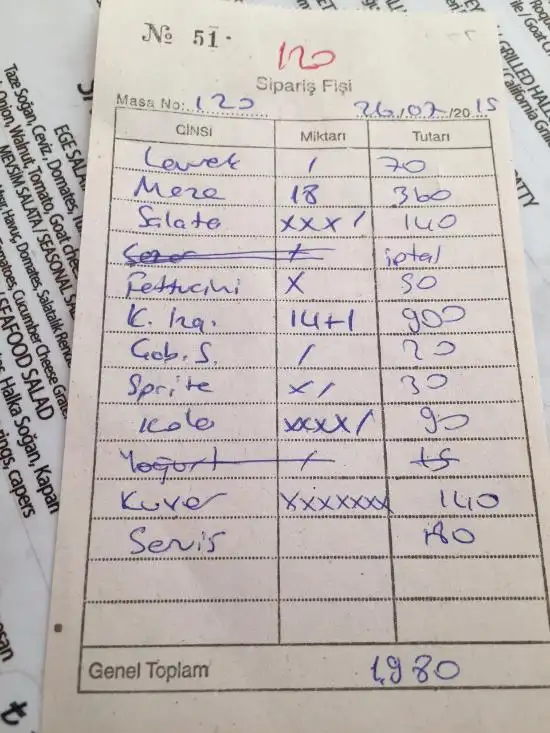 № 51
120
Sipariş Fişi
Masa No: 120 26/07/2015
CİNSİ Miktarı Tutarı
Levrek / 70
Meze 18 360
Salata xxx/ 140
iptal
Fettucini x 50
K. 14+1 900
Gob. S. / 20
Sprite x/ 30
Kola xxxx/ 90
Yoğurt / 15
Kuver xxxxxxx 140
Servis 180
Genel Toplam 1,980
Taze Soğan, Ceviz, Domates
Onion, Walnut, Tomato, Goat Chee
MEVSİM SALATA / SEASONAL
Havuç, Domates, Salatalık
Tomatoes, Cucumber Cheese Grate
SEAFOOD SALAD
Halka Soğan, Kapari
rings, capers
GRILLED
California